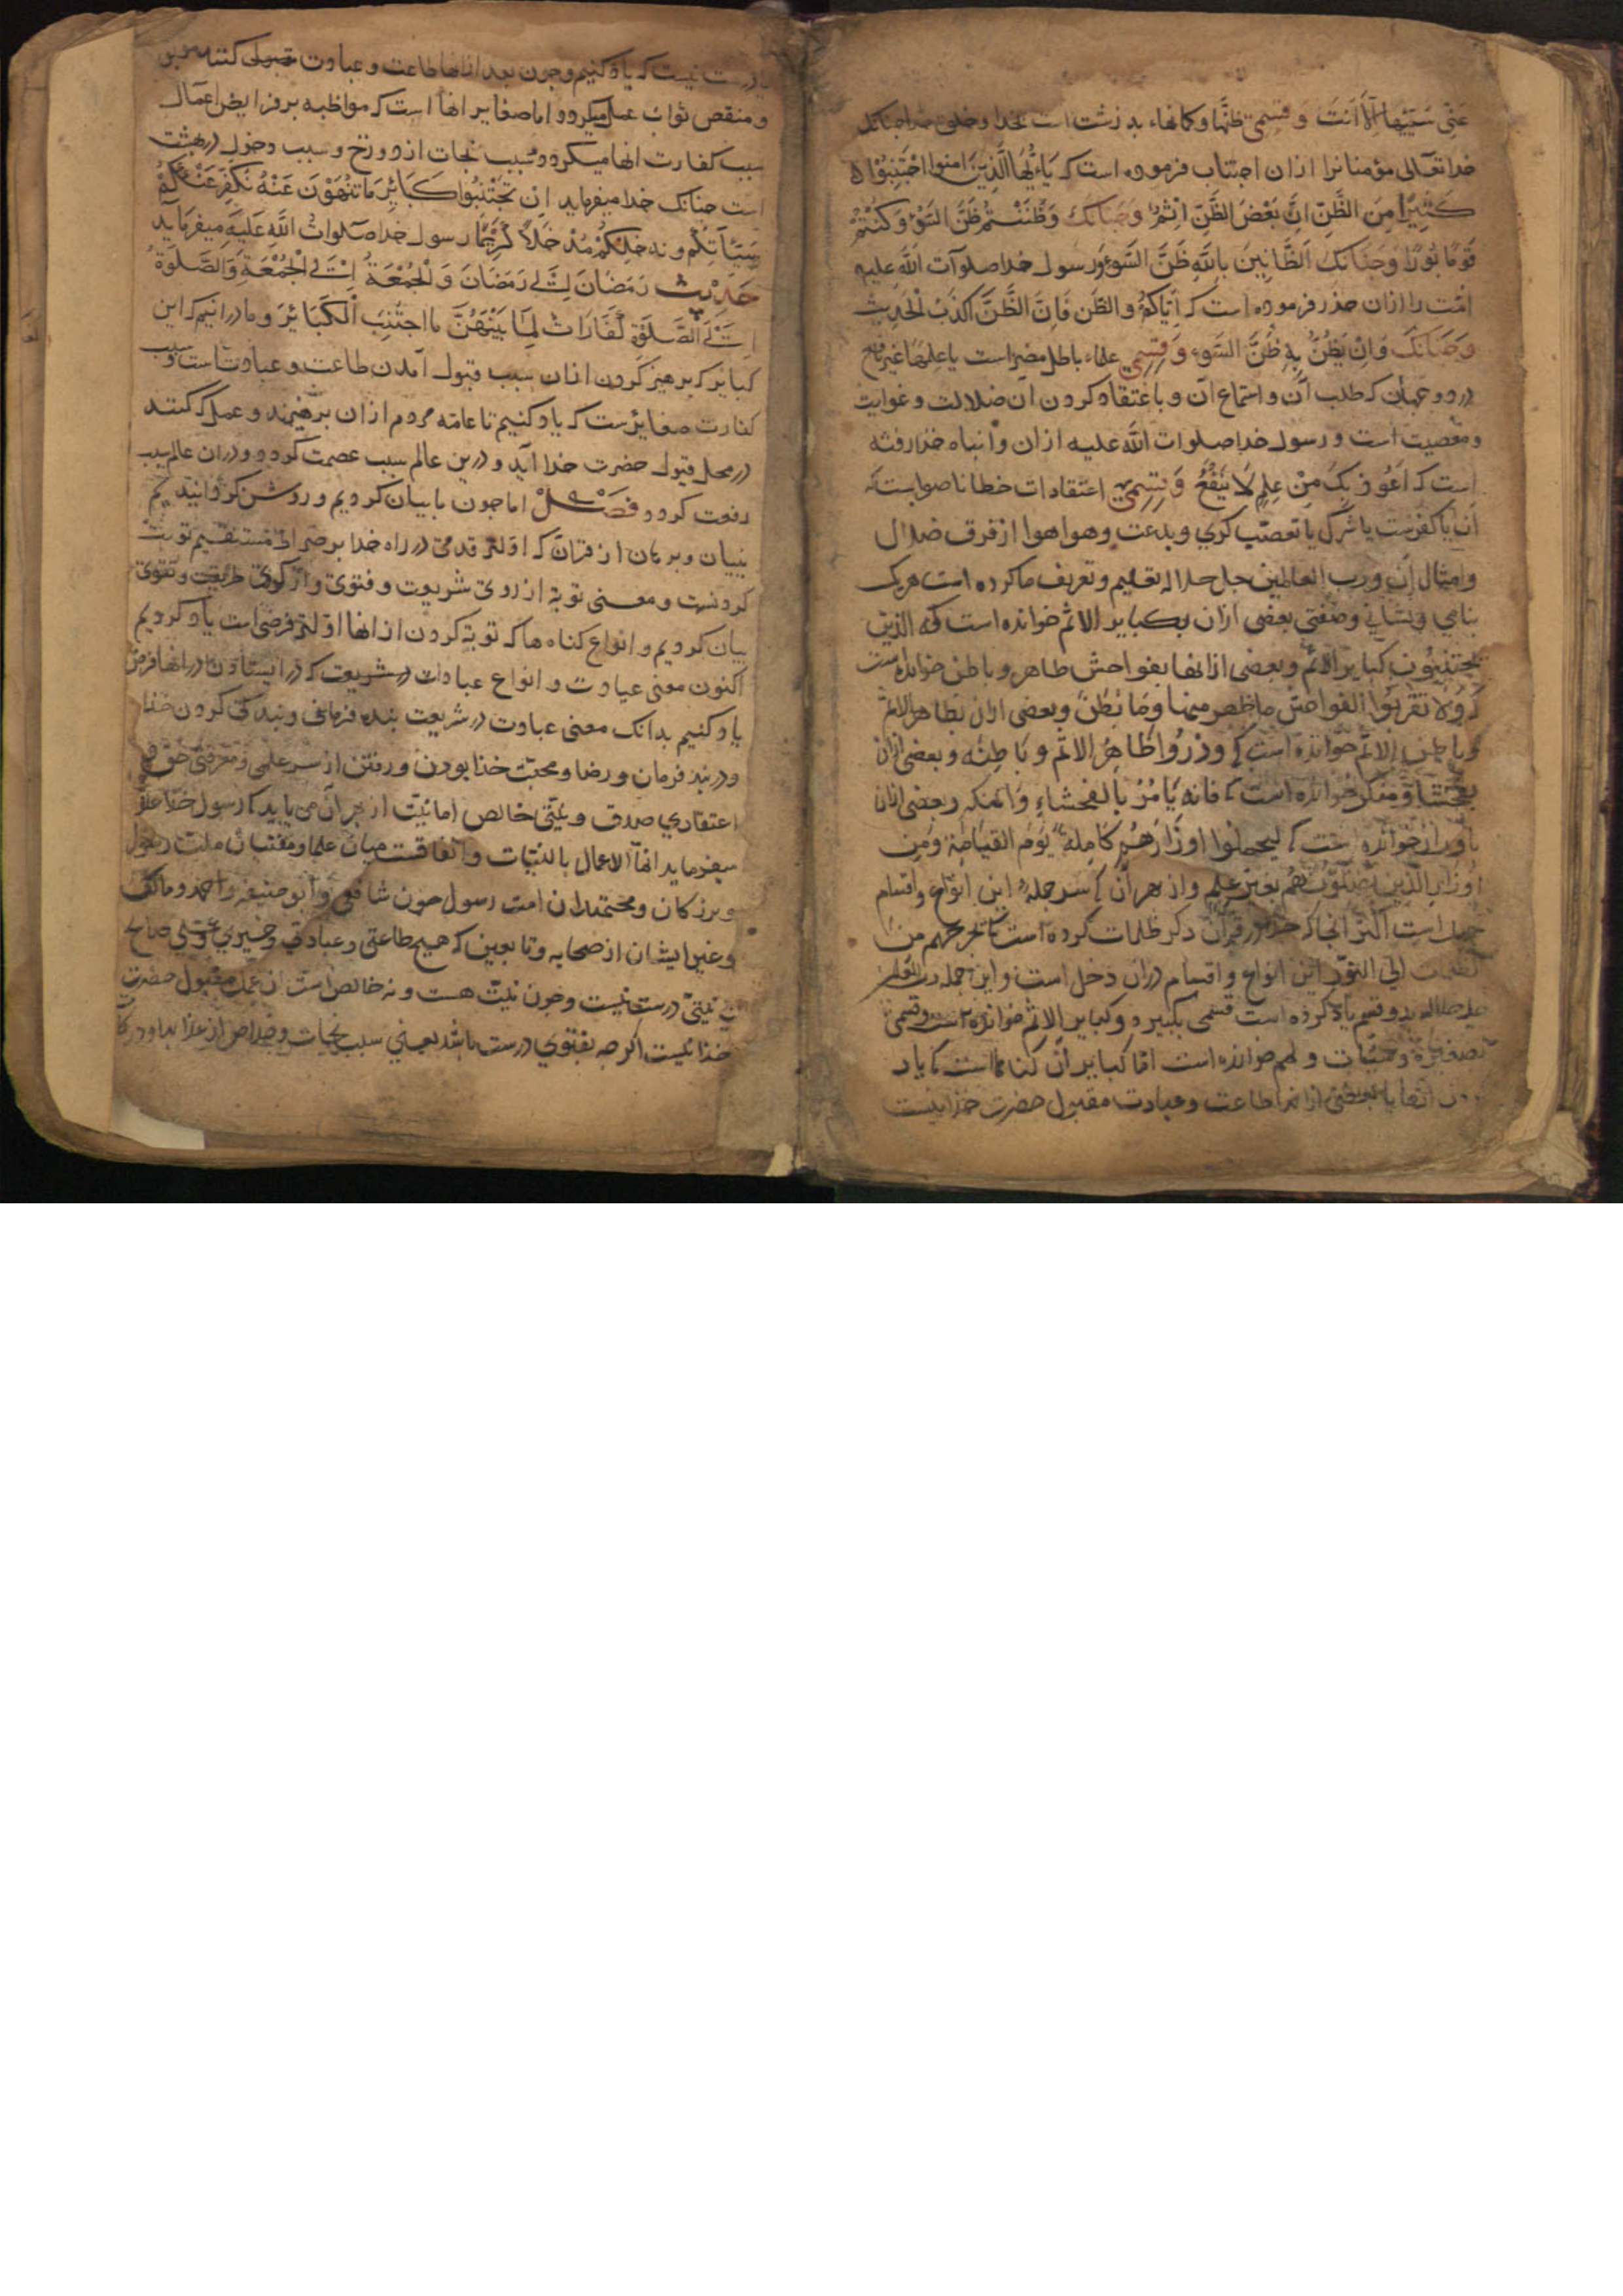 عَنِّی سَیِّئَهَا اِلَّا اَنْتَ وَ قسمی ظنّها و کمانهاء بد زشت است بخدا و خلق خدا جنانک
خدا تعالی مؤمنانرا ازان اجتناب فرموده است که یَا اَیُّهَا الَّذِیْنَ اٰمنوا اجْتَنِبُوْا
کَثِیْرًا مِنَ الظَّنِّ اِنَّ بَعْضَ الظَّنِّ اِثْمٌ وَ جنانک وَ ظَنَنْتُمْ ظَنَّ السَّوْءِ وَ کُنْتُمْ
قَوْمًا بُوْرًا وَ جنانک اَلظَّانِیْنَ بِاللّٰهِ ظَنَّ السَّوْءِ وَ رسول خدا صلوات اللّٰه علیه
امّت را ازان حذر فرموده است که اِیَّاکُمْ و الظَّن فَاِنَّ الظَّنَّ اَکْذَبُ الْحَدِیْثِ
وَ جنانک وَ اِنْ یَظُنُّ بِهٖ ظَنَّ السَّوْءِ وَ قسمی علماء باطل مضرّ است یا علمهاء غیر نافع
در دو جهان که طلب آن و استماع آن و با عتقاد کردن آن ضلالت و غوایت
و معصیت است و رسول خدا صلوات اللّٰه علیه ازان و انباه خدا رفته
است که اَعُوْذُ بِکَ مِنْ عِلْمٍ لَا یَنْفَعُ وَ قسمی اعتقادات خطا ناصوابست که
آن یا کفرست یا شرک یا تعصّب کری و بدعت و هوا هوا از فرق ضلال
و امثال آن و رب العالمین جل جلاله تعلیم و تعریف ما کرده است هر یک
بنامی و نشانی و صفتی بعضی ازان بکبایر الاثم خوانده است که الذین
یجتنبون کبایر الاثم و بعضی ازانها بفواحش ظاهر و باطن خوانده است
که وَلا تَقْرَبُوا الفواحش ما ظهر منها وَمَا بَطَنَ و بعضی ازان بظاهر الاثم
و باطن الاثم خوانده است که وذَرُوا ظَاهِرُ الاثم وَ بَاطِنَه و بعضی ازان
بفحشا و منکر خوانده است که فانه یَامُرُ بالفحشاءِ وَ المنکر و بعضی ازان
باوزار خوانده است که لیحملوا اَوْزَارَهُمْ کَامِلَةً یَوْمَ القیامة وَ مِن
اوزارِ الذین یضلّونهم بغیر علم و از هر آن که سر جمله این انواع و اقسام
جهل است اکثر انجا که خدا در قرآن ذکر ظلمات کرده است تا تخرجهم من
الظلمات الی النّور این انواع و اقسام دران دخل است و این جمله رب العالمین
جل جلاله بدو قسم یاد کرده است قسمی بکبیره و کبایر الاثم خوانده است و قسمی
بصغیره و سیّات و لمم خوانده است امّا کبایر آن کناهاست که یاد
انها یا بعضی ازانها طاعت و عبادت مقبول حضرت خدا نیست
یا درست نیست که یاد کنیم و چون بعد ازانها طاعت و عبادت کنند
و منقص ثواب عمل میکردد اما صغایر انها است که مواظبه بر فرایض اعمال
سبب کفارت انها میکردد و سبب نجات از دوزخ و سبب دخول در بهشت
است جنانک خدا میفرماید اِن تَجْتَنِبُوا کَبَائِرَ مَا تُنْهَوْنَ عَنْهُ نُکَفِّرْ عَنْکُمْ
سَیِّاٰتِکُمْ و ندخلکُمْ مُدْخَلًا کَرِیْمًا رسول خدا صلوات اللّٰه علیه میفرماید
حَدِیْث رَمَضَانَ اِلٰی رَمَضَانَ وَ الْجُمُعَةُ اِلَی الْجُمُعَةِ وَ الصَّلٰوةُ
اِلَی الصَّلٰوةِ کَفَّارَاتٌ لِمَا بَیْنَهُنَّ مَا اجْتُنِبَ الْکَبَائِرَ و ما درانیم که این
کبایر که برهیز کردن ازان سبب قبول آمدن طاعت و عبادتست و سبب
کفارت صغایرست که یاد کنیم تا عامّه مردم ازان برهیزند و عمل که کنند
در محل قبول حضرت خدا آید و درین عالم سبب عصمت کردد و دران عالم سبب
رفعت کردد فَصْلٌ اما چون ما بیان کردیم و روشن کردانیدیم
ببیان و برهان از قرآن که اولتر قدمی در راه خدا بر صراط مستقیم توبت
کردنست و معنی توبه از روی شریعت و فتوی و از کوی طریقت و تقوی
بیان کردیم و انواع کناه ها که توبه کردن ازانها اولتر فرض است یاد کردیم
اکنون معنی عبادت و انواع عبادات در شریعت که در ایستادن در انها فرض
یاد کنیم بدانک معنی عبادت در شریعت بنده فرمانی و بندکی کردن خدا
و در بند فرمان و رضا و محبت خدا بودن و رفتن از سر علمی و معرفتی حق و
اعتقادی صدق و نیّتی خالص اما نیّت از بهر آن می باید که رسول خدا
میفرماید انما الاعمال بالنیّات و اتفاقست میان علما و مفتیان ملت رسول
و بزرکان و مجتهدان امت رسول چون شافعی و ابو حنیفه و احمد و مالک
و غیر ایشان از صحابه و تابعین که هیچ طاعتی و عبادتی و خیری و عملی صالح
بی نیّتی درست نیست و چون نیّت هست و نه خالص است آن عمل مقبول حضرت
خدا نیست اکر چه بفتوی درست باشد یعنی سبب نجات و خلاص از عذاب